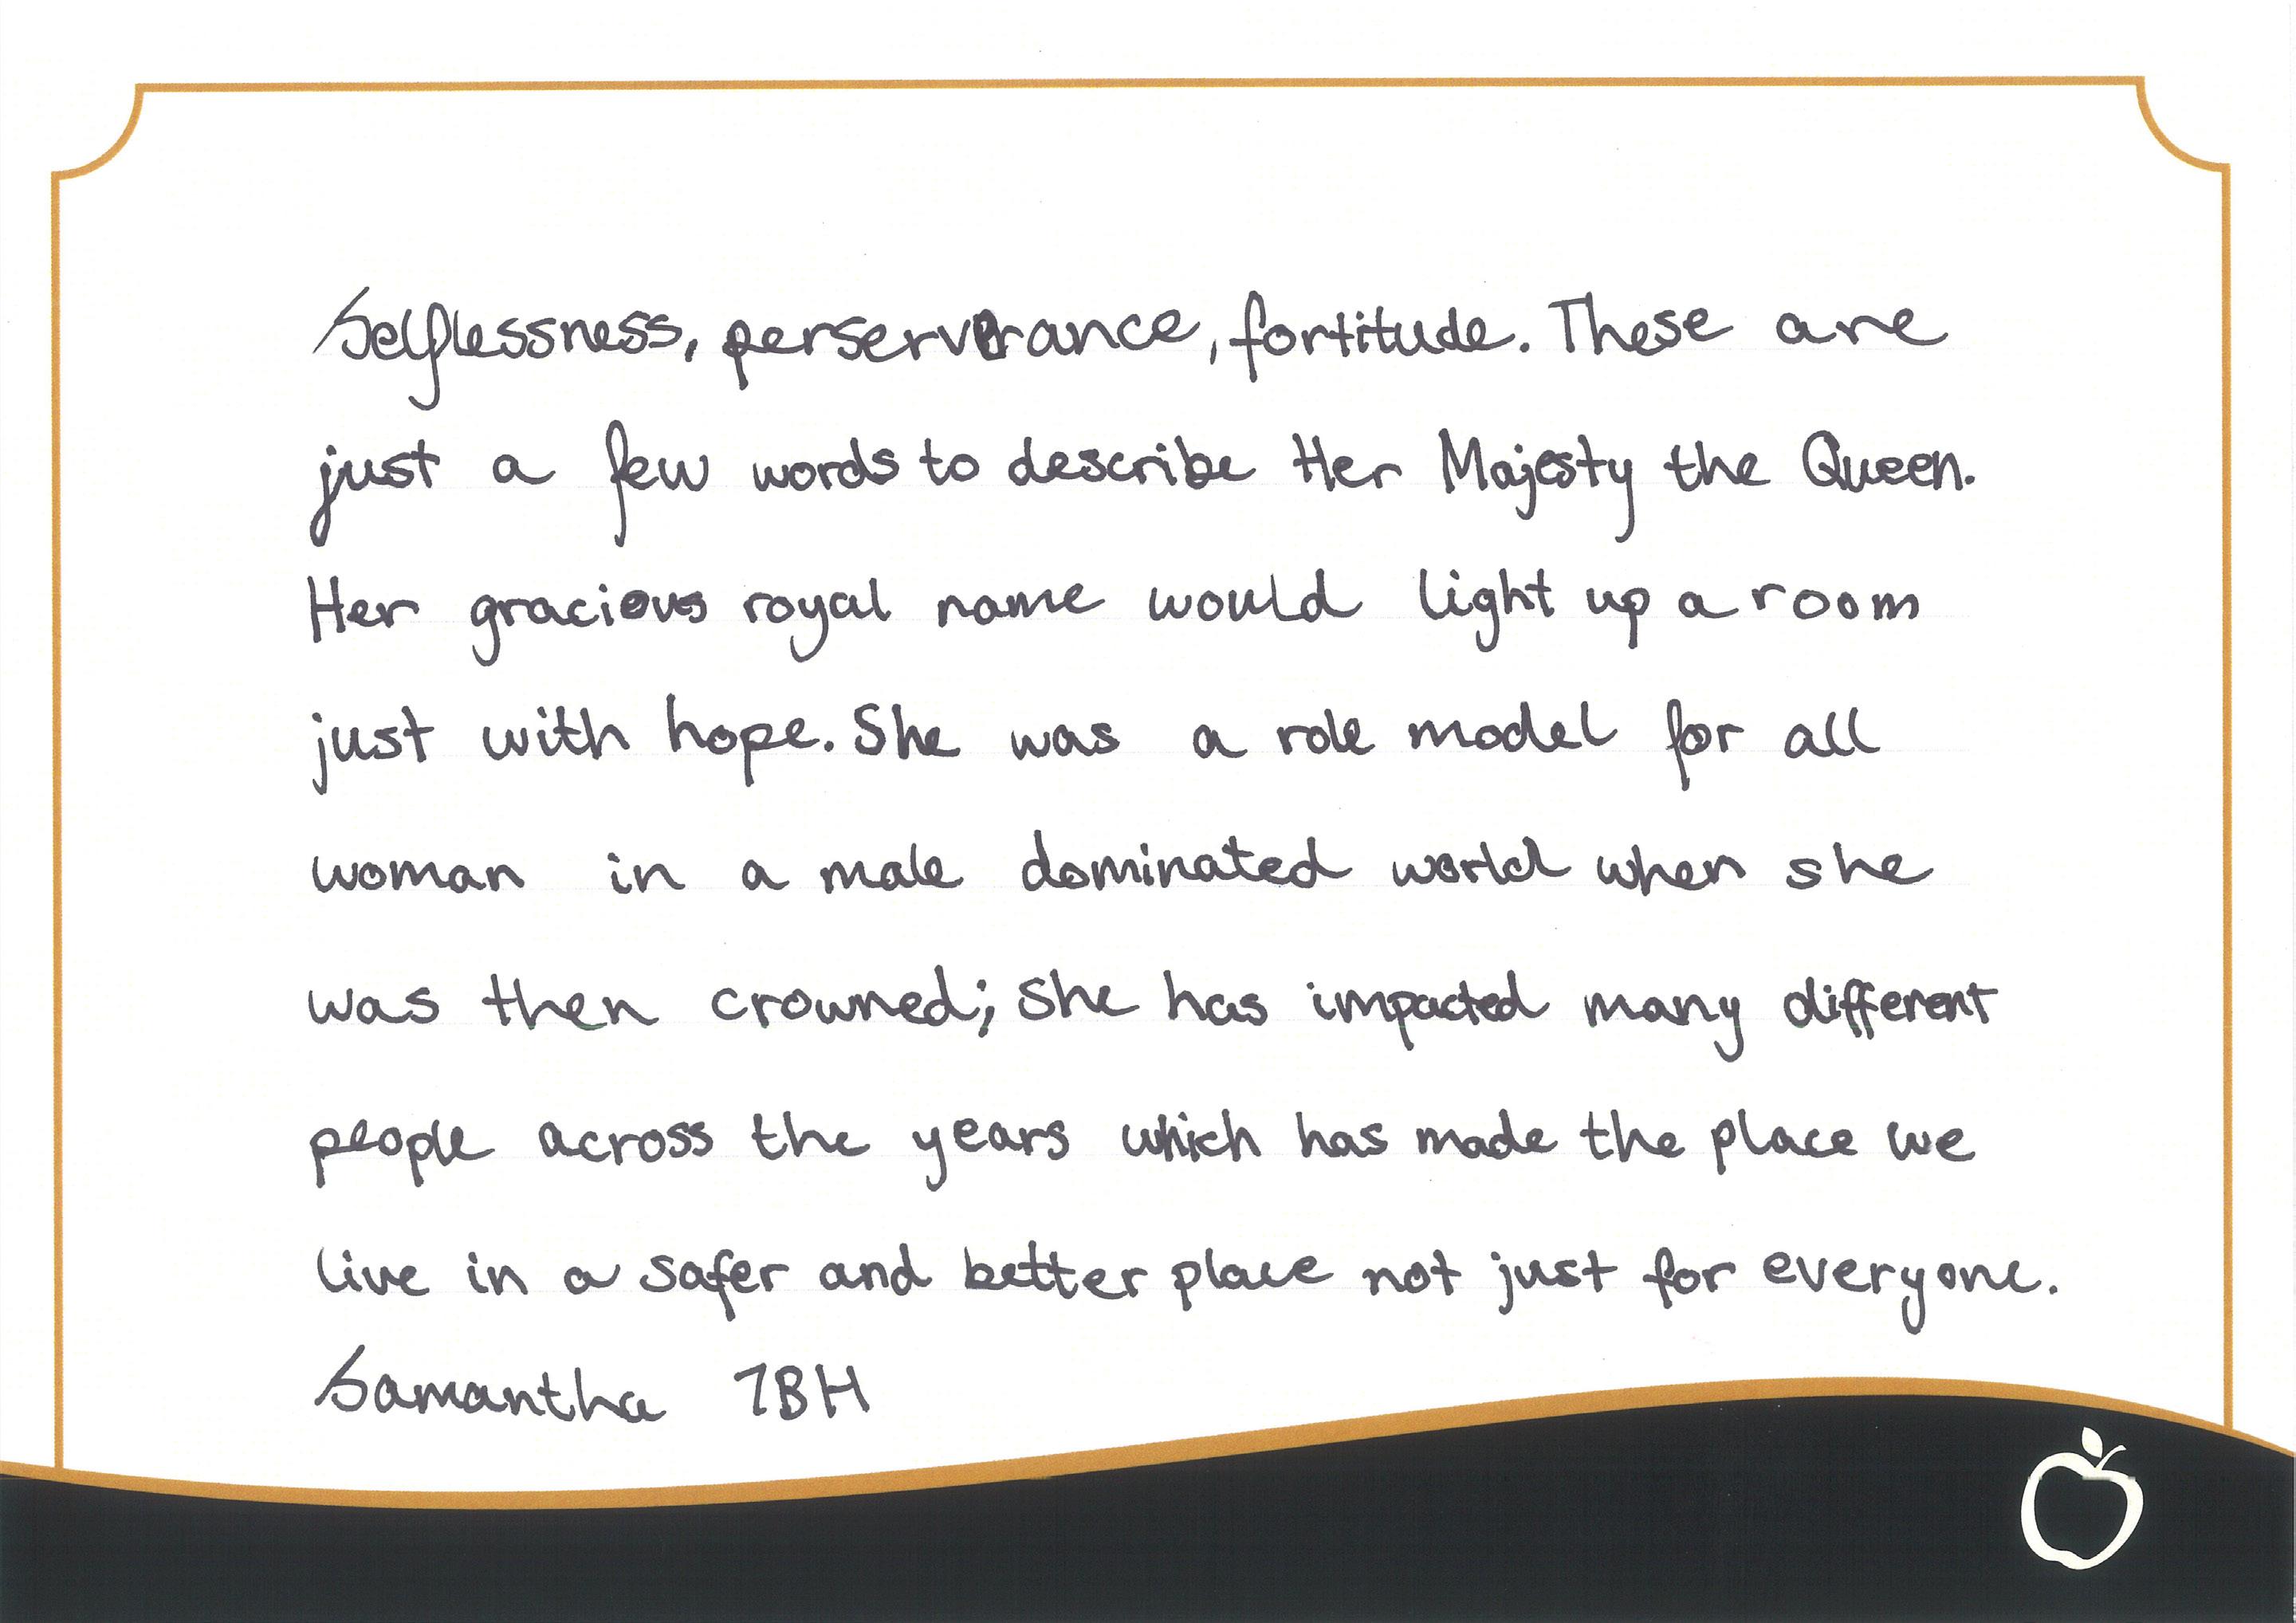 Selflessness, perserverance, fortitude. These are
just a few words to describe Her Majesty the Queen.
Her gracious royal name would light up a room
just with hope. She was a role model for all
woman in a male dominated world when she
was then crowned; she has impacted many different
people across the years which has made the place we
live in a safer and better place not just for everyone.
Samantha 7BH